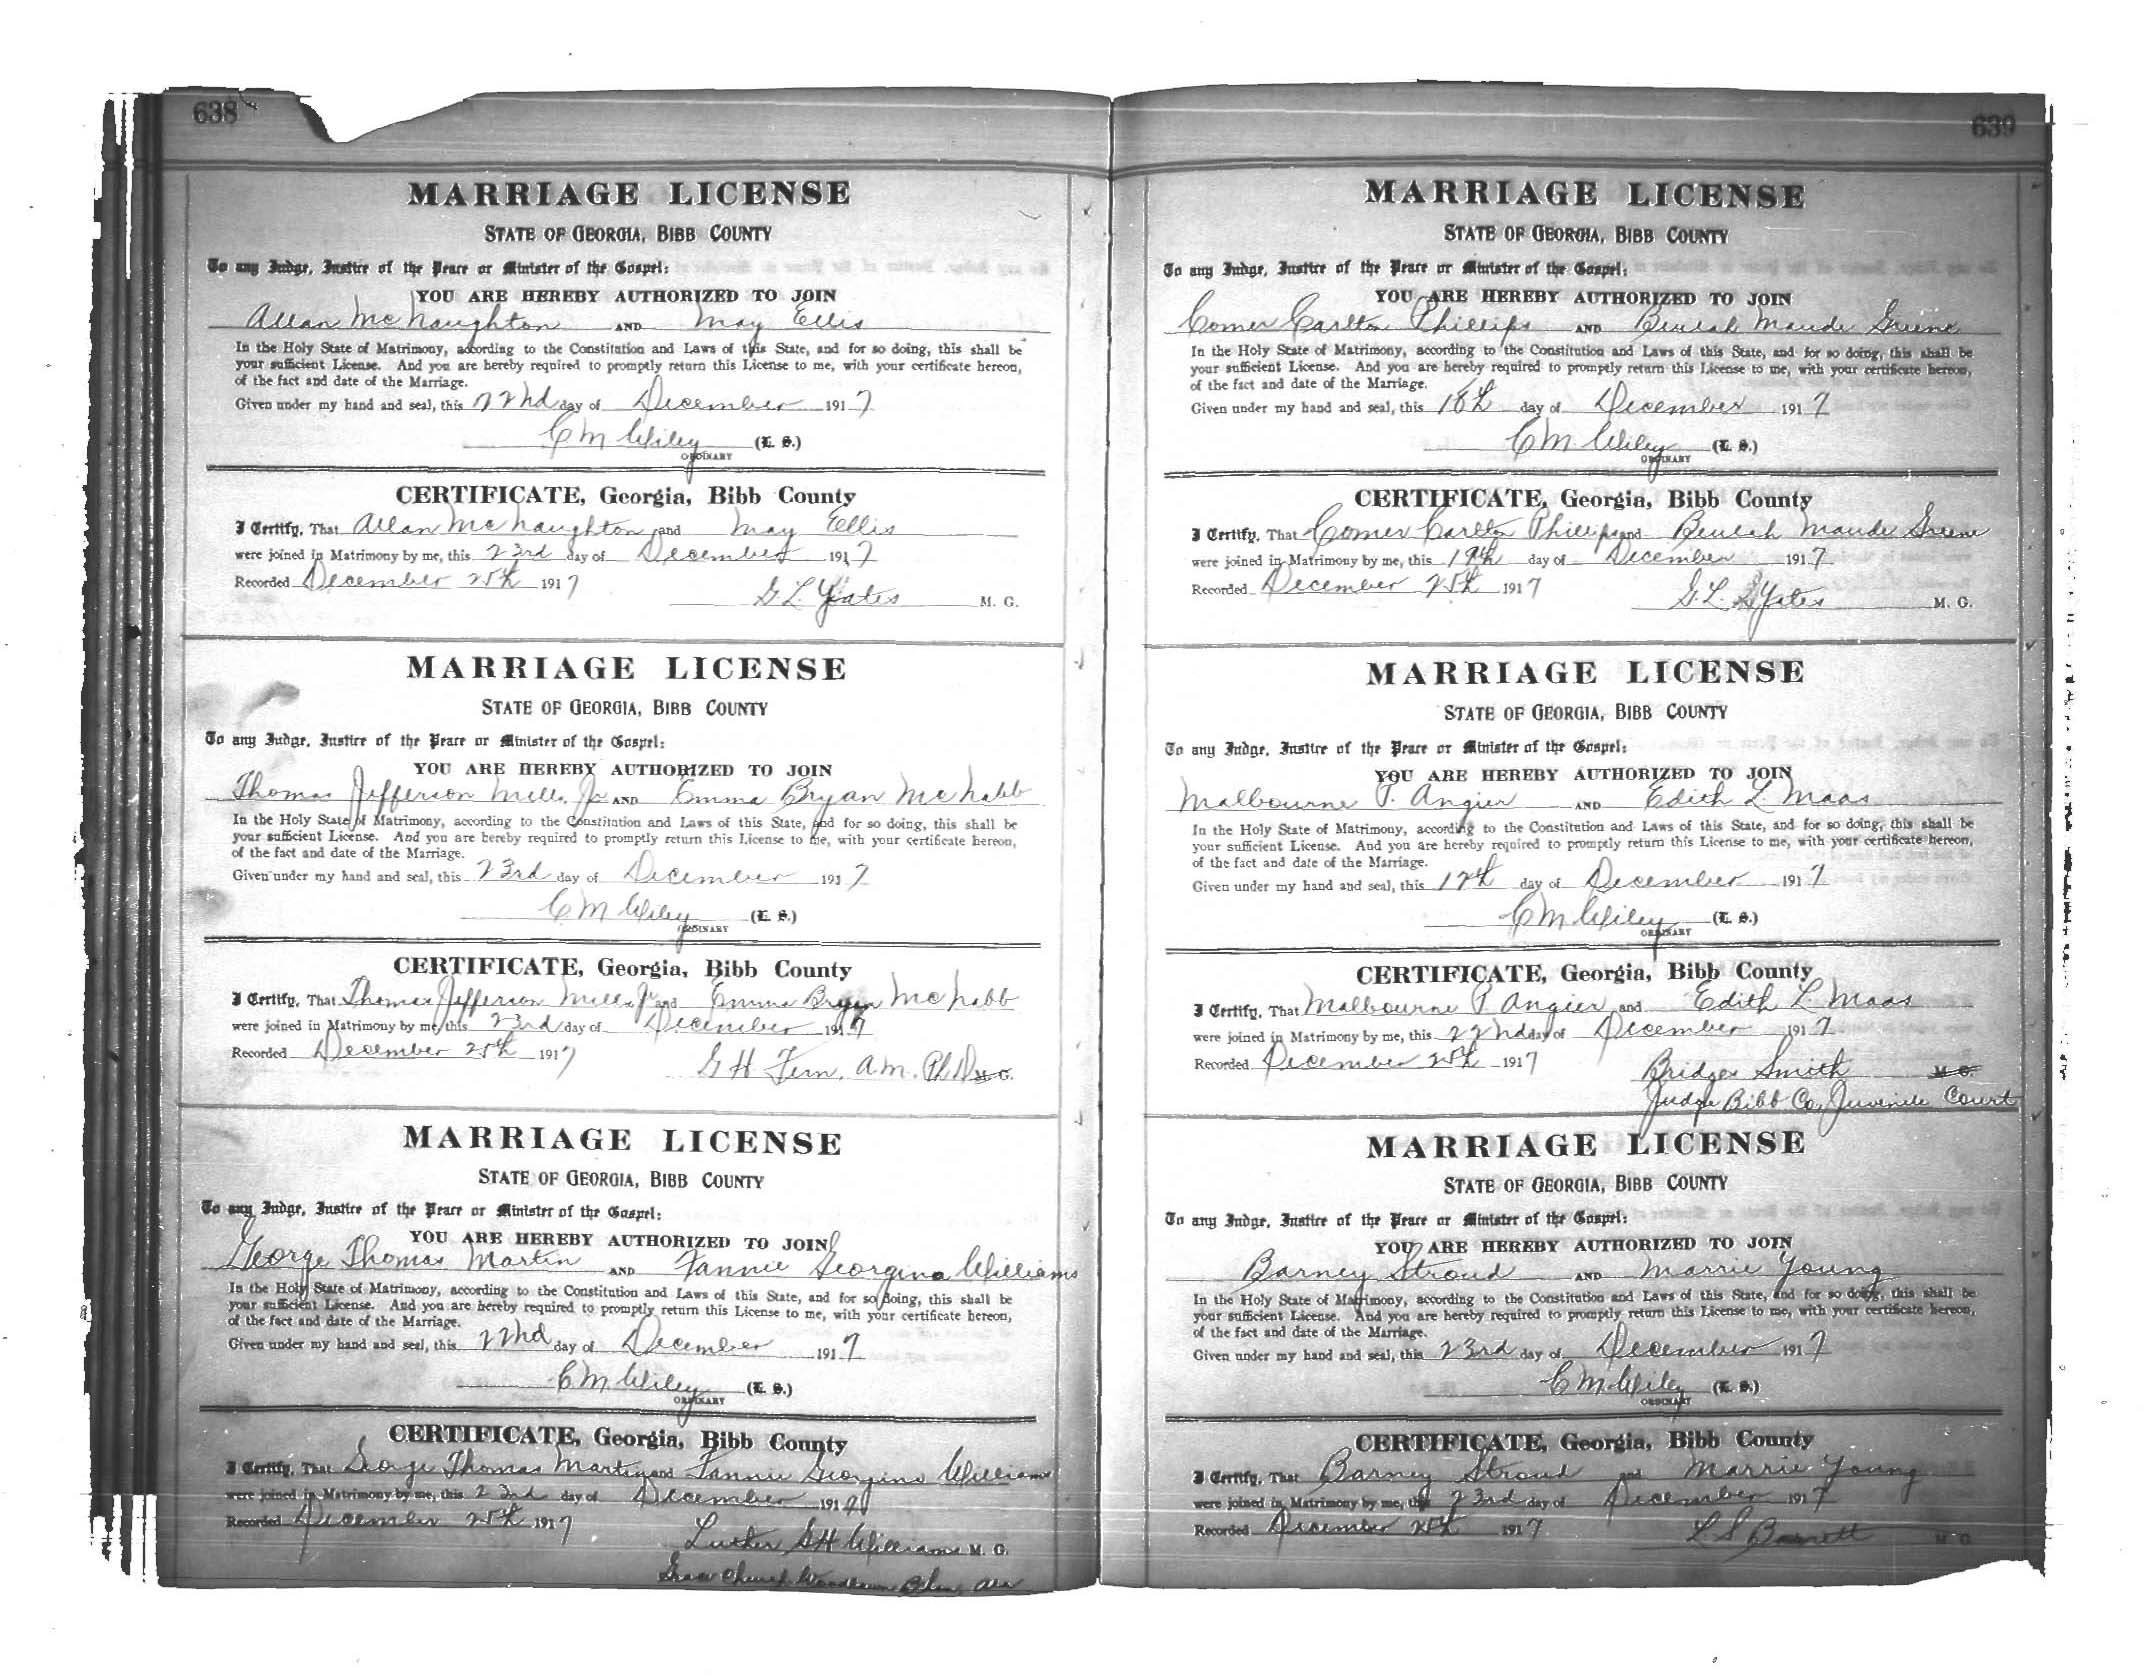 638
MARRIAGE LICENSE
STATE OF GEORGIA, BIBB COUNTY
To any Judge, Justice of the Peace or Minister of the Gospel:
YOU ARE HEREBY AUTHORIZED TO JOIN
Allan McNaughton AND May Ellis
In the Holy State of Matrimony, according to the Constitution and Laws of this State, and for so doing, this shall be
your sufficient License. And you are hereby required to promptly return this License to me, with your certificate hereon,
of the fact and date of the Marriage.
Given under my hand and seal, this 22nd day of December 1917
C M Wiley (L. S.)
ORDINARY
CERTIFICATE, Georgia, Bibb County
I Certify, That Allan McNaughton and May Ellis
were joined in Matrimony by me, this 23rd day of December 1917
Recorded December 25th 1917
G L Yates M. G.
MARRIAGE LICENSE
STATE OF GEORGIA, BIBB COUNTY
To any Judge, Justice of the Peace or Minister of the Gospel:
YOU ARE HEREBY AUTHORIZED TO JOIN
Thomas Jefferson Mills Jr AND Emma Bryan McNabb
In the Holy State of Matrimony, according to the Constitution and Laws of this State, and for so doing, this shall be
your sufficient License. And you are hereby required to promptly return this License to me, with your certificate hereon,
of the fact and date of the Marriage.
Given under my hand and seal, this 23rd day of December 1917
C M Wiley (L. S.)
ORDINARY
CERTIFICATE, Georgia, Bibb County
I Certify, That Thomas Jefferson Mills Jr and Emma Bryan McNabb
were joined in Matrimony by me, this 23rd day of December 1917
Recorded December 25th 1917
G H Fern, A.M. Ph D M. G.
MARRIAGE LICENSE
STATE OF GEORGIA, BIBB COUNTY
To any Judge, Justice of the Peace or Minister of the Gospel:
YOU ARE HEREBY AUTHORIZED TO JOIN
George Thomas Martin AND Fannie Georgina Williams
In the Holy State of Matrimony, according to the Constitution and Laws of this State, and for so doing, this shall be
your sufficient License. And you are hereby required to promptly return this License to me, with your certificate hereon,
of the fact and date of the Marriage.
Given under my hand and seal, this 22nd day of December 1917
C M Wiley (L. S.)
ORDINARY
CERTIFICATE, Georgia, Bibb County
I Certify, That George Thomas Martin and Fannie Georgina Williams
were joined in Matrimony by me, this 23rd day of December 1917
Recorded December 25th 1917
Luther G H Williams M. G.
Grace Church Woodlawn Ala
639
MARRIAGE LICENSE
STATE OF GEORGIA, BIBB COUNTY
To any Judge, Justice of the Peace or Minister of the Gospel:
YOU ARE HEREBY AUTHORIZED TO JOIN
Comer Carlton Phillips AND Beulah Maude Greene
In the Holy State of Matrimony, according to the Constitution and Laws of this State, and for so doing, this shall be
your sufficient License. And you are hereby required to promptly return this License to me, with your certificate hereon,
of the fact and date of the Marriage.
Given under my hand and seal, this 18th day of December 1917
C M Wiley (L. S.)
ORDINARY
CERTIFICATE, Georgia, Bibb County
I Certify, That Comer Carlton Phillips and Beulah Maude Greene
were joined in Matrimony by me, this 19th day of December 1917
Recorded December 25th 1917
G. L. Yates M. G.
MARRIAGE LICENSE
STATE OF GEORGIA, BIBB COUNTY
To any Judge, Justice of the Peace or Minister of the Gospel:
YOU ARE HEREBY AUTHORIZED TO JOIN
Malbourne P. Angier AND Edith L. Maas
In the Holy State of Matrimony, according to the Constitution and Laws of this State, and for so doing, this shall be
your sufficient License. And you are hereby required to promptly return this License to me, with your certificate hereon,
of the fact and date of the Marriage.
Given under my hand and seal, this 12th day of December 1917
C M Wiley (L. S.)
ORDINARY
CERTIFICATE, Georgia, Bibb County
I Certify, That Malbourne P. Angier and Edith L. Maas
were joined in Matrimony by me, this 22nd day of December 1917
Recorded December 25th 1917
Bridges Smith M. G.
Judge Bibb Co, Juvenile Court
MARRIAGE LICENSE
STATE OF GEORGIA, BIBB COUNTY
To any Judge, Justice of the Peace or Minister of the Gospel:
YOU ARE HEREBY AUTHORIZED TO JOIN
Barney Stroud AND Marrie Young
In the Holy State of Matrimony, according to the Constitution and Laws of this State, and for so doing, this shall be
your sufficient License. And you are hereby required to promptly return this License to me, with your certificate hereon,
of the fact and date of the Marriage.
Given under my hand and seal, this 23rd day of December 1917
C M Wiley (L. S.)
ORDINARY
CERTIFICATE, Georgia, Bibb County
I Certify, That Barney Stroud and Marrie Young
were joined in Matrimony by me, this 23rd day of December 1917
Recorded December 25th 1917
L S Barrett M. G.